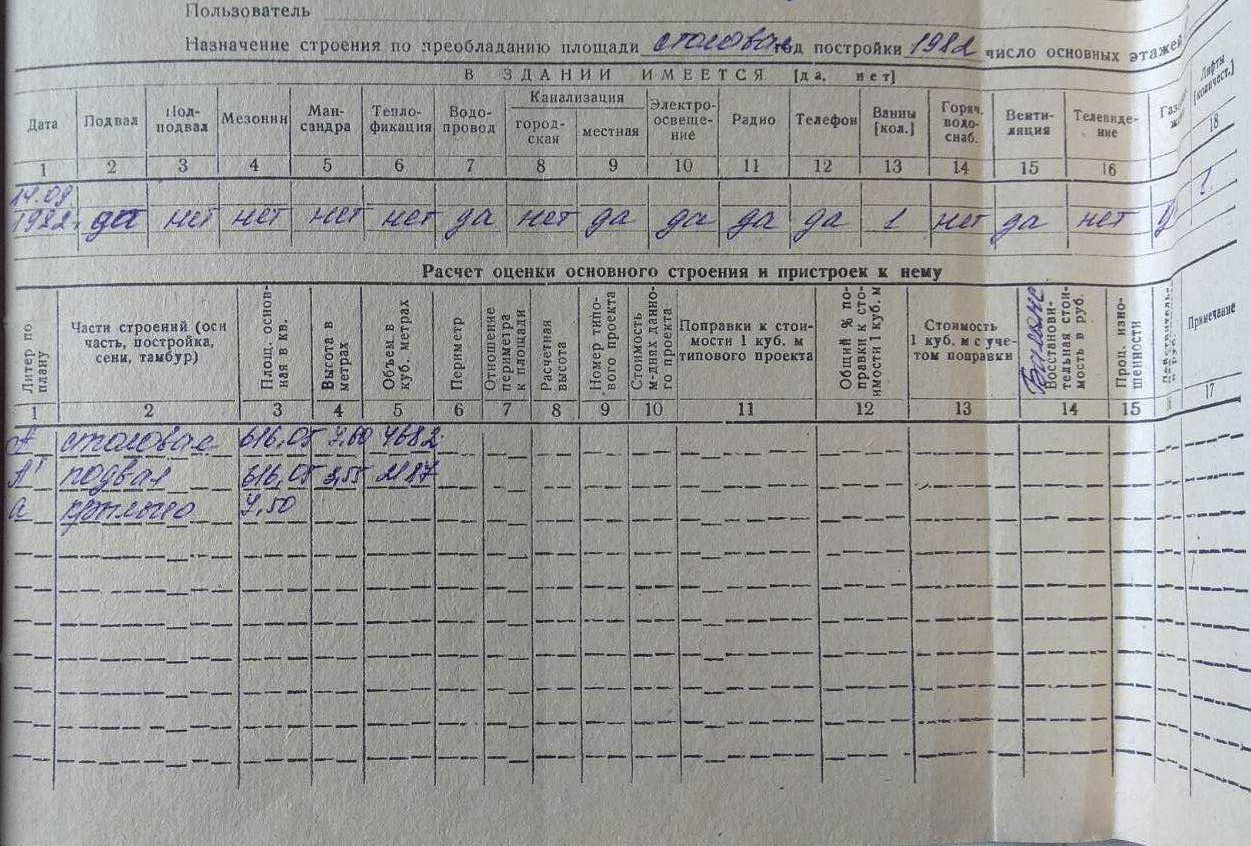 Пользователь
Назначение строения по преобладанию площади столовая год постройки 1982 число основных этажей
В ЗДАНИИ ИМЕЕТСЯ [да, нет]
Дата Подвал Пол-подвал Мезонин Ман-сандра Тепло-фикация Водо-провод Канализация город-ская местная Электро-освеще-ние Радио Телефон Ванны [кол.] Горяч. водо-снаб. Венти-ляция Телевиде-ние Лифты [количест.]
1 2 3 4 5 6 7 8 9 10 11 12 13 14 15 16 18
14.09
1982г. да нет нет нет нет да нет да да да да 1 нет да нет
Расчет оценки основного строения и пристроек к нему
Литер по плану Части строений (осн часть, постройка, сени, тамбур) Площ. основ-ная в кв. Высота в метрах Объем в куб. метрах Периметр Отношение периметра к площади Расчетная высота Номер типо-вого проекта Стоимость м-днях данно-го проекта Поправки к стои-мости 1 куб. м типового проекта Общий % по-правки к сто-имости 1 куб. м Стоимость 1 куб. м с уче-том поправки Восстанови-тельная стои-мость в руб. Проц. изно-шенности Примечание
1 2 3 4 5 6 7 8 9 10 11 12 13 14 15 17
А столовая 616,05 7,60 4682
А¹ подвал 616,05 3,55 2187
а крыльцо 7,50